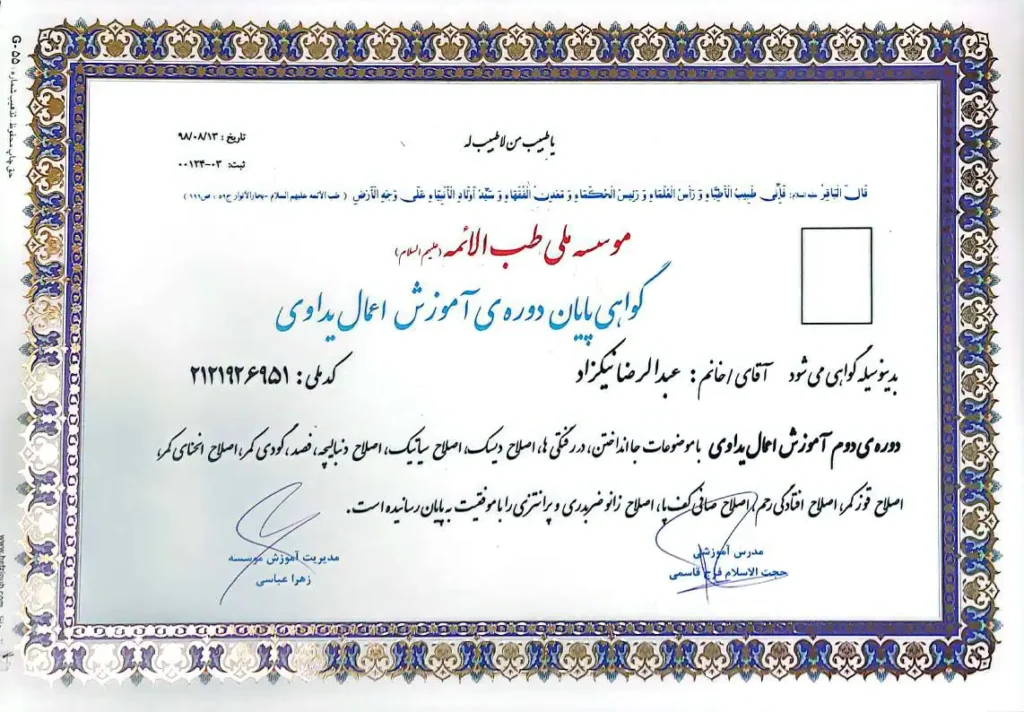 یا طبیب من لا طبیب له
تاریخ : ۹۸/۰۸/۱۳
ثبت: ۰۳-۰۰۱۲۴
قالَ الباقِرُ علیه السلام: فَإِنّی طَبیبُ الأَطِبّاءِ وَ رَأسُ العُلَماءِ وَ رَئیسُ الحُکَماءِ وَ مَعدِنُ الفُقَهاءِ وَ سَیِّدُ أَولادِ الأَنبِیاءِ عَلی وَجهِ الأَرضِ ( طب الائمه علیهم السلام -بحارالأنوار ج۵۹ ، ص
موسسه ملی طب الائمه (علیهم السلام)
گواهی پایان دوره ی آموزش اعمال یداوی
بدینوسیله گواهی می شود آقای/خانم : عبدالرضا نیکزاد کد ملی : ۲۱۲۱۹۲۶۹۵۱
دوره ی دوم آموزش اعمال یداوی با موضوعات جا انداختن، دررفتگی ها، اصلاح دیسک، اصلاح سیاتیک، اصلاح دنبالیچه، فصد، گودی کمر، اصلاح انحنای کمر،
اصلاح قوز کمر، اصلاح افتادگی رحم، اصلاح صافی کف پا، اصلاح زانو ضربدری و پرانتزی را با موفقیت به پایان رسانیده است.
مدرس آموزشی
حجت الاسلام فرج قاسمی
مدیریت آموزش موسسه
زهرا عباسی
حق چاپ محفوظ، تذهیب شماره: G-۵۵